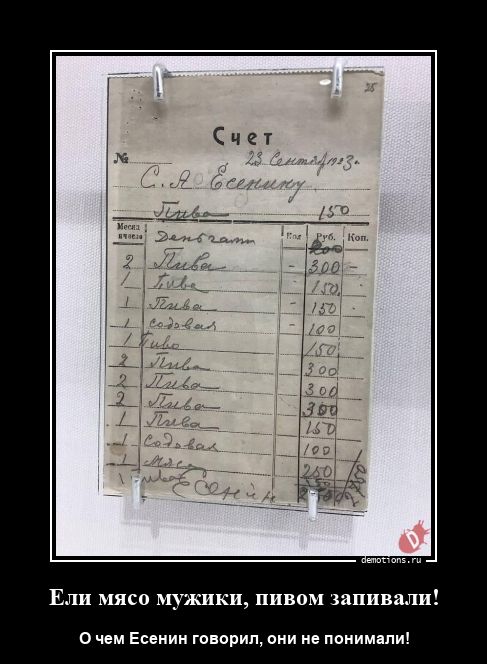 25
Счет
№ 23 Сентяб 1923 г.
С. А. Есенину
Пива 150
Месяц и число Руб. Коп.
Деньгами 200
2 Пива - 300 -
1 Пива - 150
1 Пива - 150
1 содовая - 100
1 Пиво 150
2 Пива 300
2 Пива 300
2 Пива 300
1 Пива 150
1 Содовая 100
1 Мясо 250
1 Есенин
demotions.ru
Ели мясо мужики, пивом запивали!
О чем Есенин говорил, они не понимали!